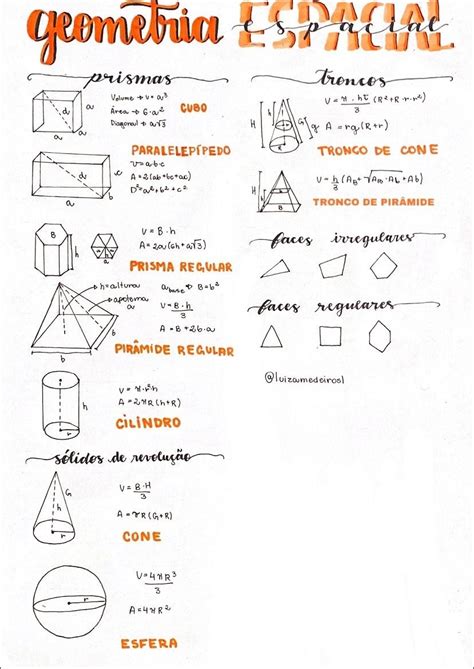 geometria ESPACIAL
espacial
prismas
Volume → V = a³
Área → 6·a²
Diagonal → a√3
CUBO
d
a
a
a
PARALELEPÍPEDO
V = a·b·c
A = 2(ab+bc+ac)
D² = a²+b²+c²
d
c
b
a
B
h
a
V = B·h
A = 2a(6h+a√3)
PRISMA REGULAR
h = altura
apótema
a base → B = b²
V = B·h
3
A = B+2b·a
b
b
PIRÂMIDE REGULAR
h
r
V = π·r²h
A = 2πR(h+R)
CILINDRO
sólidos de revolução
G
h
r
V = B·H
3
A = πR(G+R)
CONE
r
V = 4πR³
3
A = 4πR²
ESFERA
troncos
H
h
r
R
g
V = π·ht (R²+R·r·r²)
3
A = πg(R+r)
TRONCO DE CONE
H
h
b
B
V = h (AB+√AB·Ab+Ab)
3
TRONCO DE PIRÂMIDE
faces irregulares
faces regulares
@luizamedeiros1